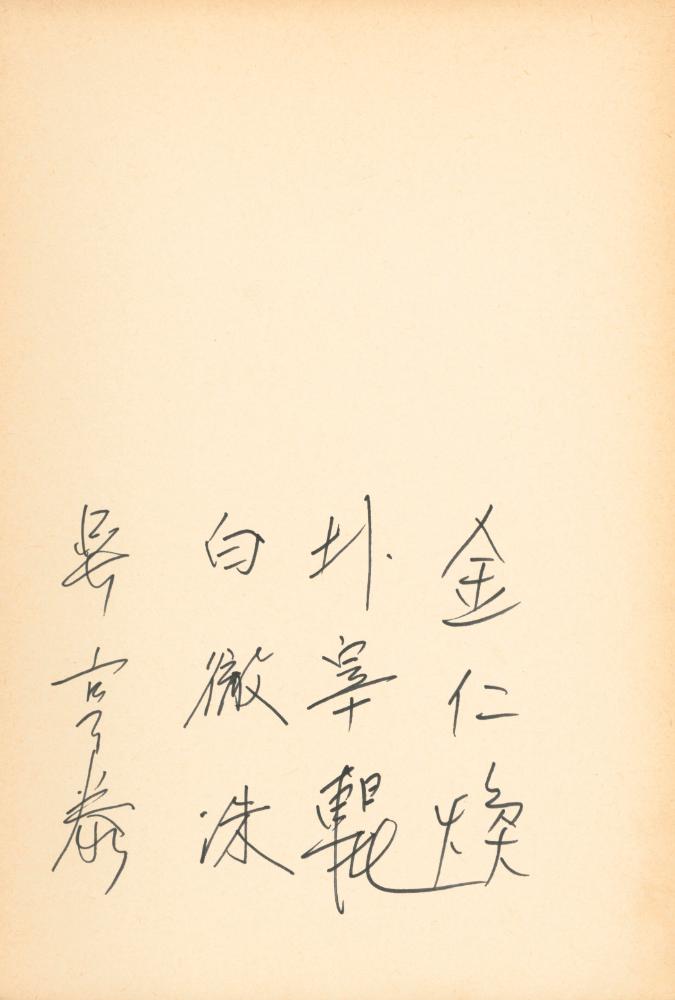 金仁煥
朴宰輥
白徹洙
吳亨泰